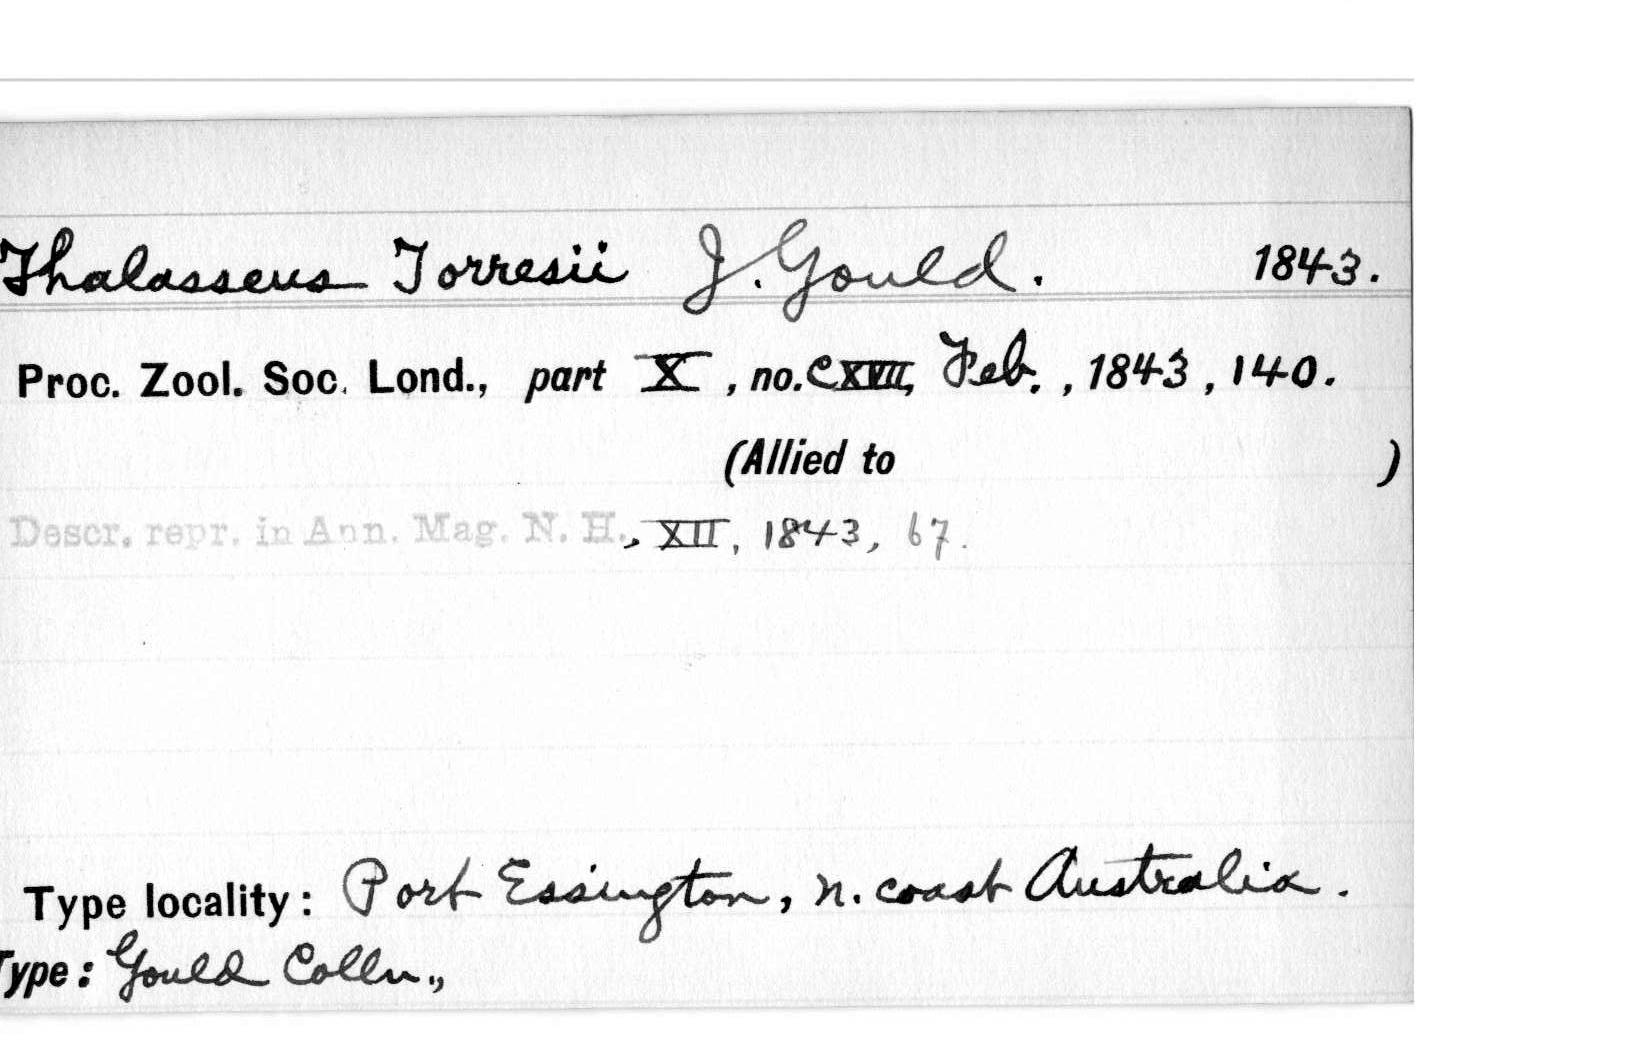 Thalasseus Torresii J. Gould. 1843.
Proc. Zool. Soc. Lond., part X, no. CXVII, Feb., 1843, 140.
(Allied to )
Descr. repr. in Ann. Mag. N. H., XII, 1843, 67.
Type locality: Port Essington, n. coast Australia.
Type: Gould Colln.,